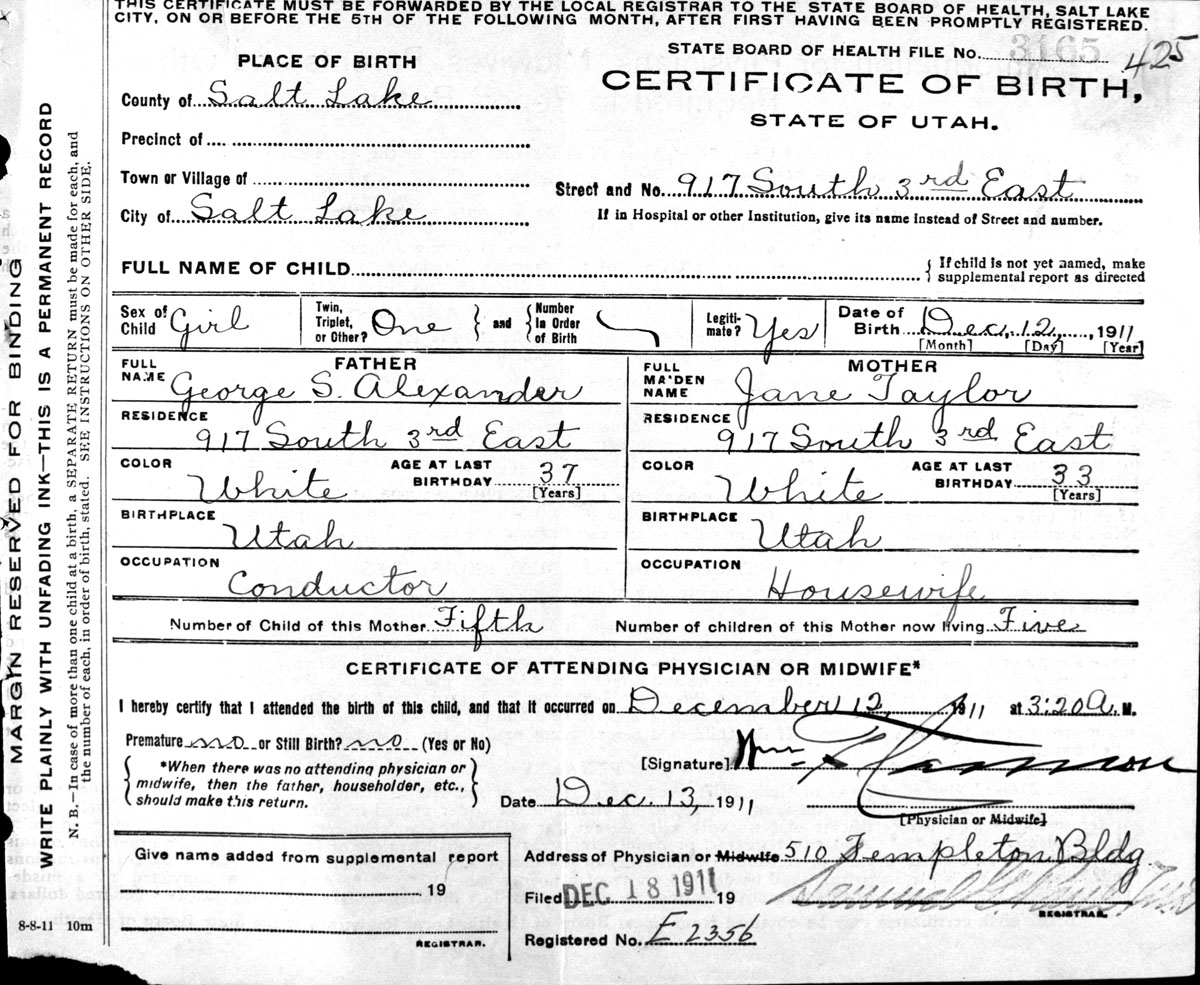 THIS CERTIFICATE MUST BE FORWARDED BY THE LOCAL REGISTRAR TO THE STATE BOARD OF HEALTH, SALT LAKE
CITY, ON OR BEFORE THE 5TH OF THE FOLLOWING MONTH, AFTER FIRST HAVING BEEN PROMPTLY REGISTERED.
MARGIN RESERVED FOR BINDING
WRITE PLAINLY WITH UNFADING INK—THIS IS A PERMANENT RECORD
N. B.—In case of more than one child at a birth, a SEPARATE RETURN must be made for each, and
the number of each, in order of birth, stated. SEE INSTRUCTIONS ON OTHER SIDE.
STATE BOARD OF HEALTH FILE No. 3165 425
PLACE OF BIRTH
CERTIFICATE OF BIRTH,
STATE OF UTAH.
County of Salt Lake
Precinct of
Town or Village of
Street and No. 917 South 3rd East
City of Salt Lake
If in Hospital or other Institution, give its name instead of Street and number.
FULL NAME OF CHILD
If child is not yet named, make
supplemental report as directed
Sex of Child Girl
Twin, Triplet, or Other? One
and Number In Order of Birth
Legiti-mate? Yes
Date of Birth Dec. 12, 1911
[Month] [Day] [Year]
FATHER MOTHER
FULL NAME George S. Alexander
FULL MAIDEN NAME Jane Taylor
RESIDENCE 917 South 3rd East
RESIDENCE 917 South 3rd East
COLOR White AGE AT LAST BIRTHDAY 37 [Years]
COLOR White AGE AT LAST BIRTHDAY 33 [Years]
BIRTHPLACE Utah
BIRTHPLACE Utah
OCCUPATION Conductor
OCCUPATION Housewife
Number of Child of this Mother Fifth Number of children of this Mother now living Five
CERTIFICATE OF ATTENDING PHYSICIAN OR MIDWIFE*
I hereby certify that I attended the birth of this child, and that it occurred on December 12, 1911 at 3:20 A. M.
Premature no or Still Birth? no (Yes or No)
[Signature] Wm
*When there was no attending physician or
midwife, then the father, householder, etc.,
should make this return.
Date Dec. 13, 1911
[Physician or Midwife]
Give name added from supplemental report
Address of Physician or Midwife 510 Templeton Bldg
19
Filed DEC 18 1911 19 Samuel G.
REGISTRAR.
8-8-11 10m
REGISTRAR.
Registered No. E 2356